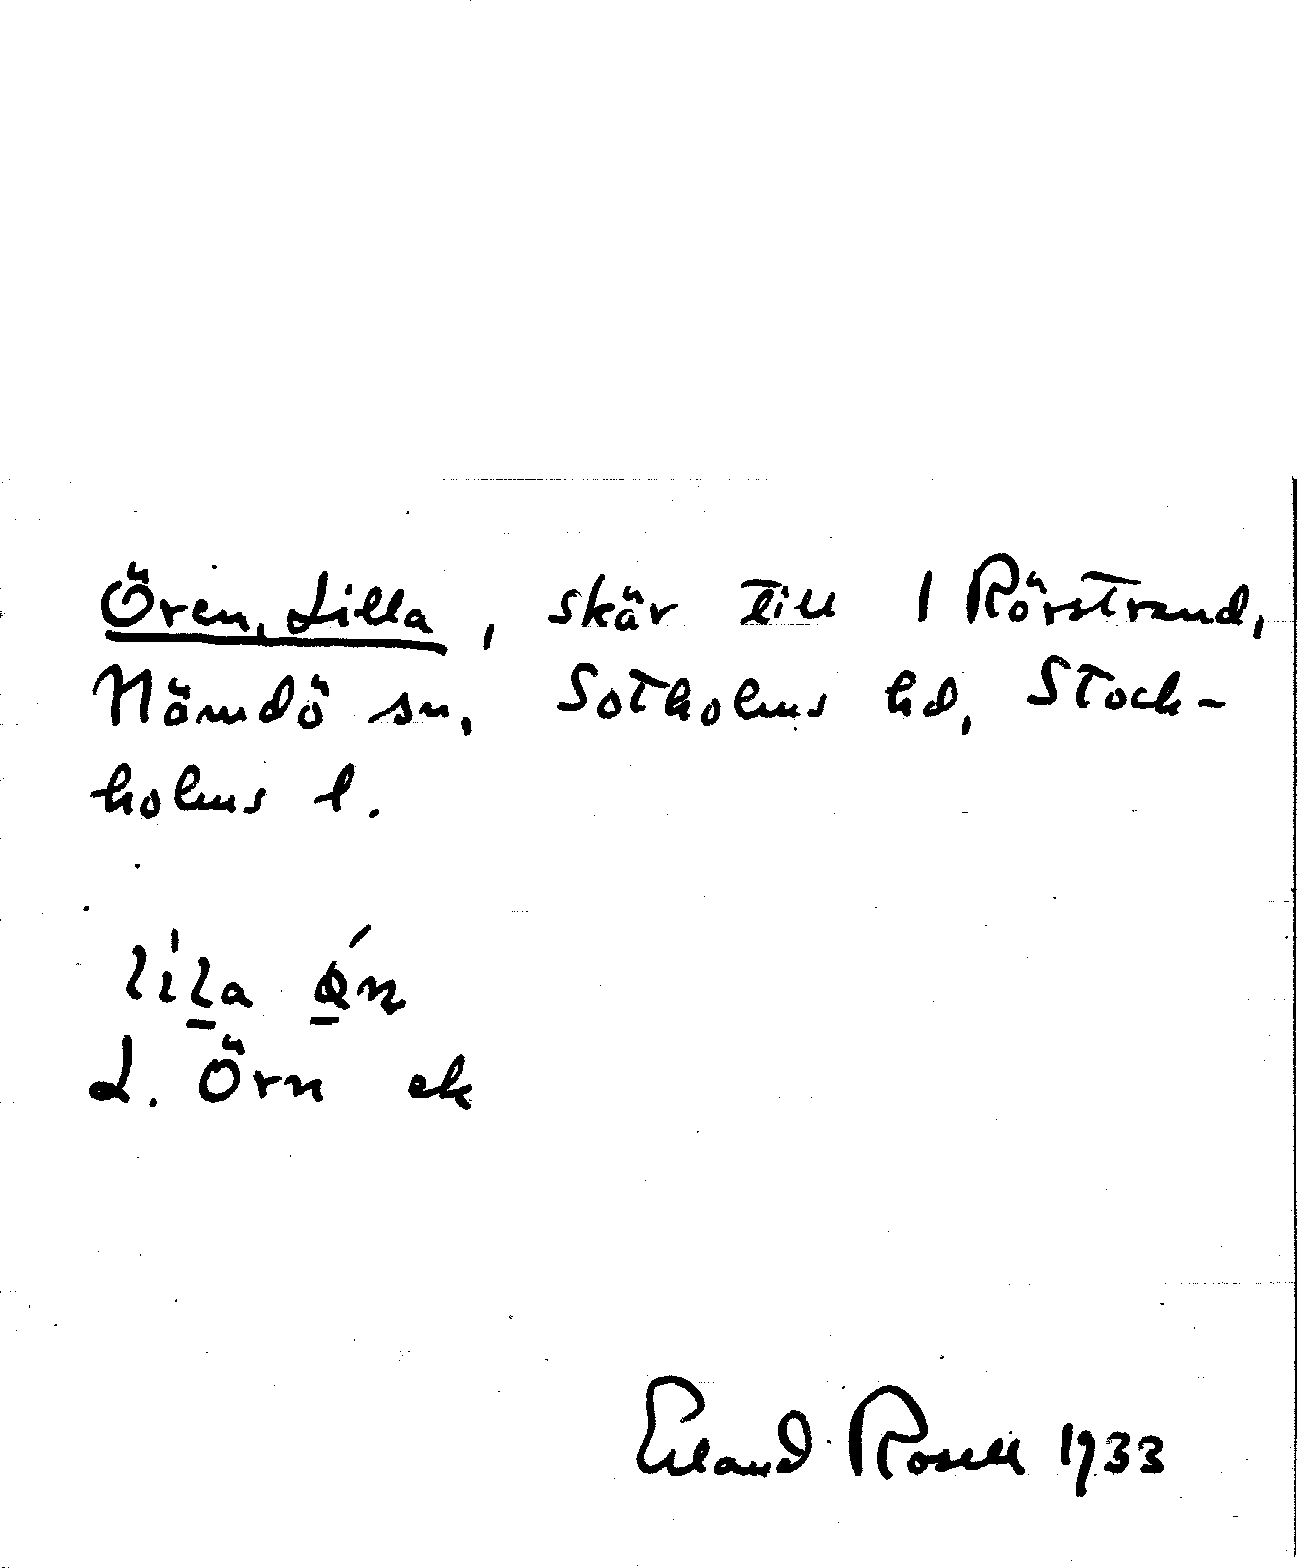 Ören, Lilla, skär till 1 Rörstrand,
Nämdö sn, Sotholms hd, Stock-
holms l.
L. Örn ek
Erland Rosell 1933